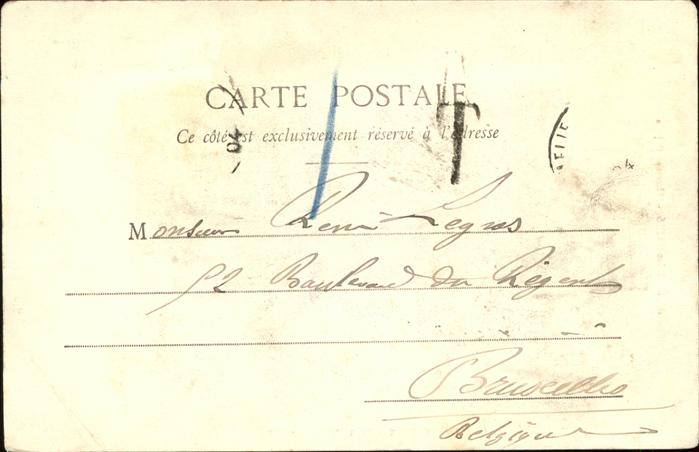 CARTE POSTALE
T
04
Ce côté est exclusivement réservé à l'adresse
Monsieur René Legros
52 Boulevard du Régent
Bruxelles
Belgique